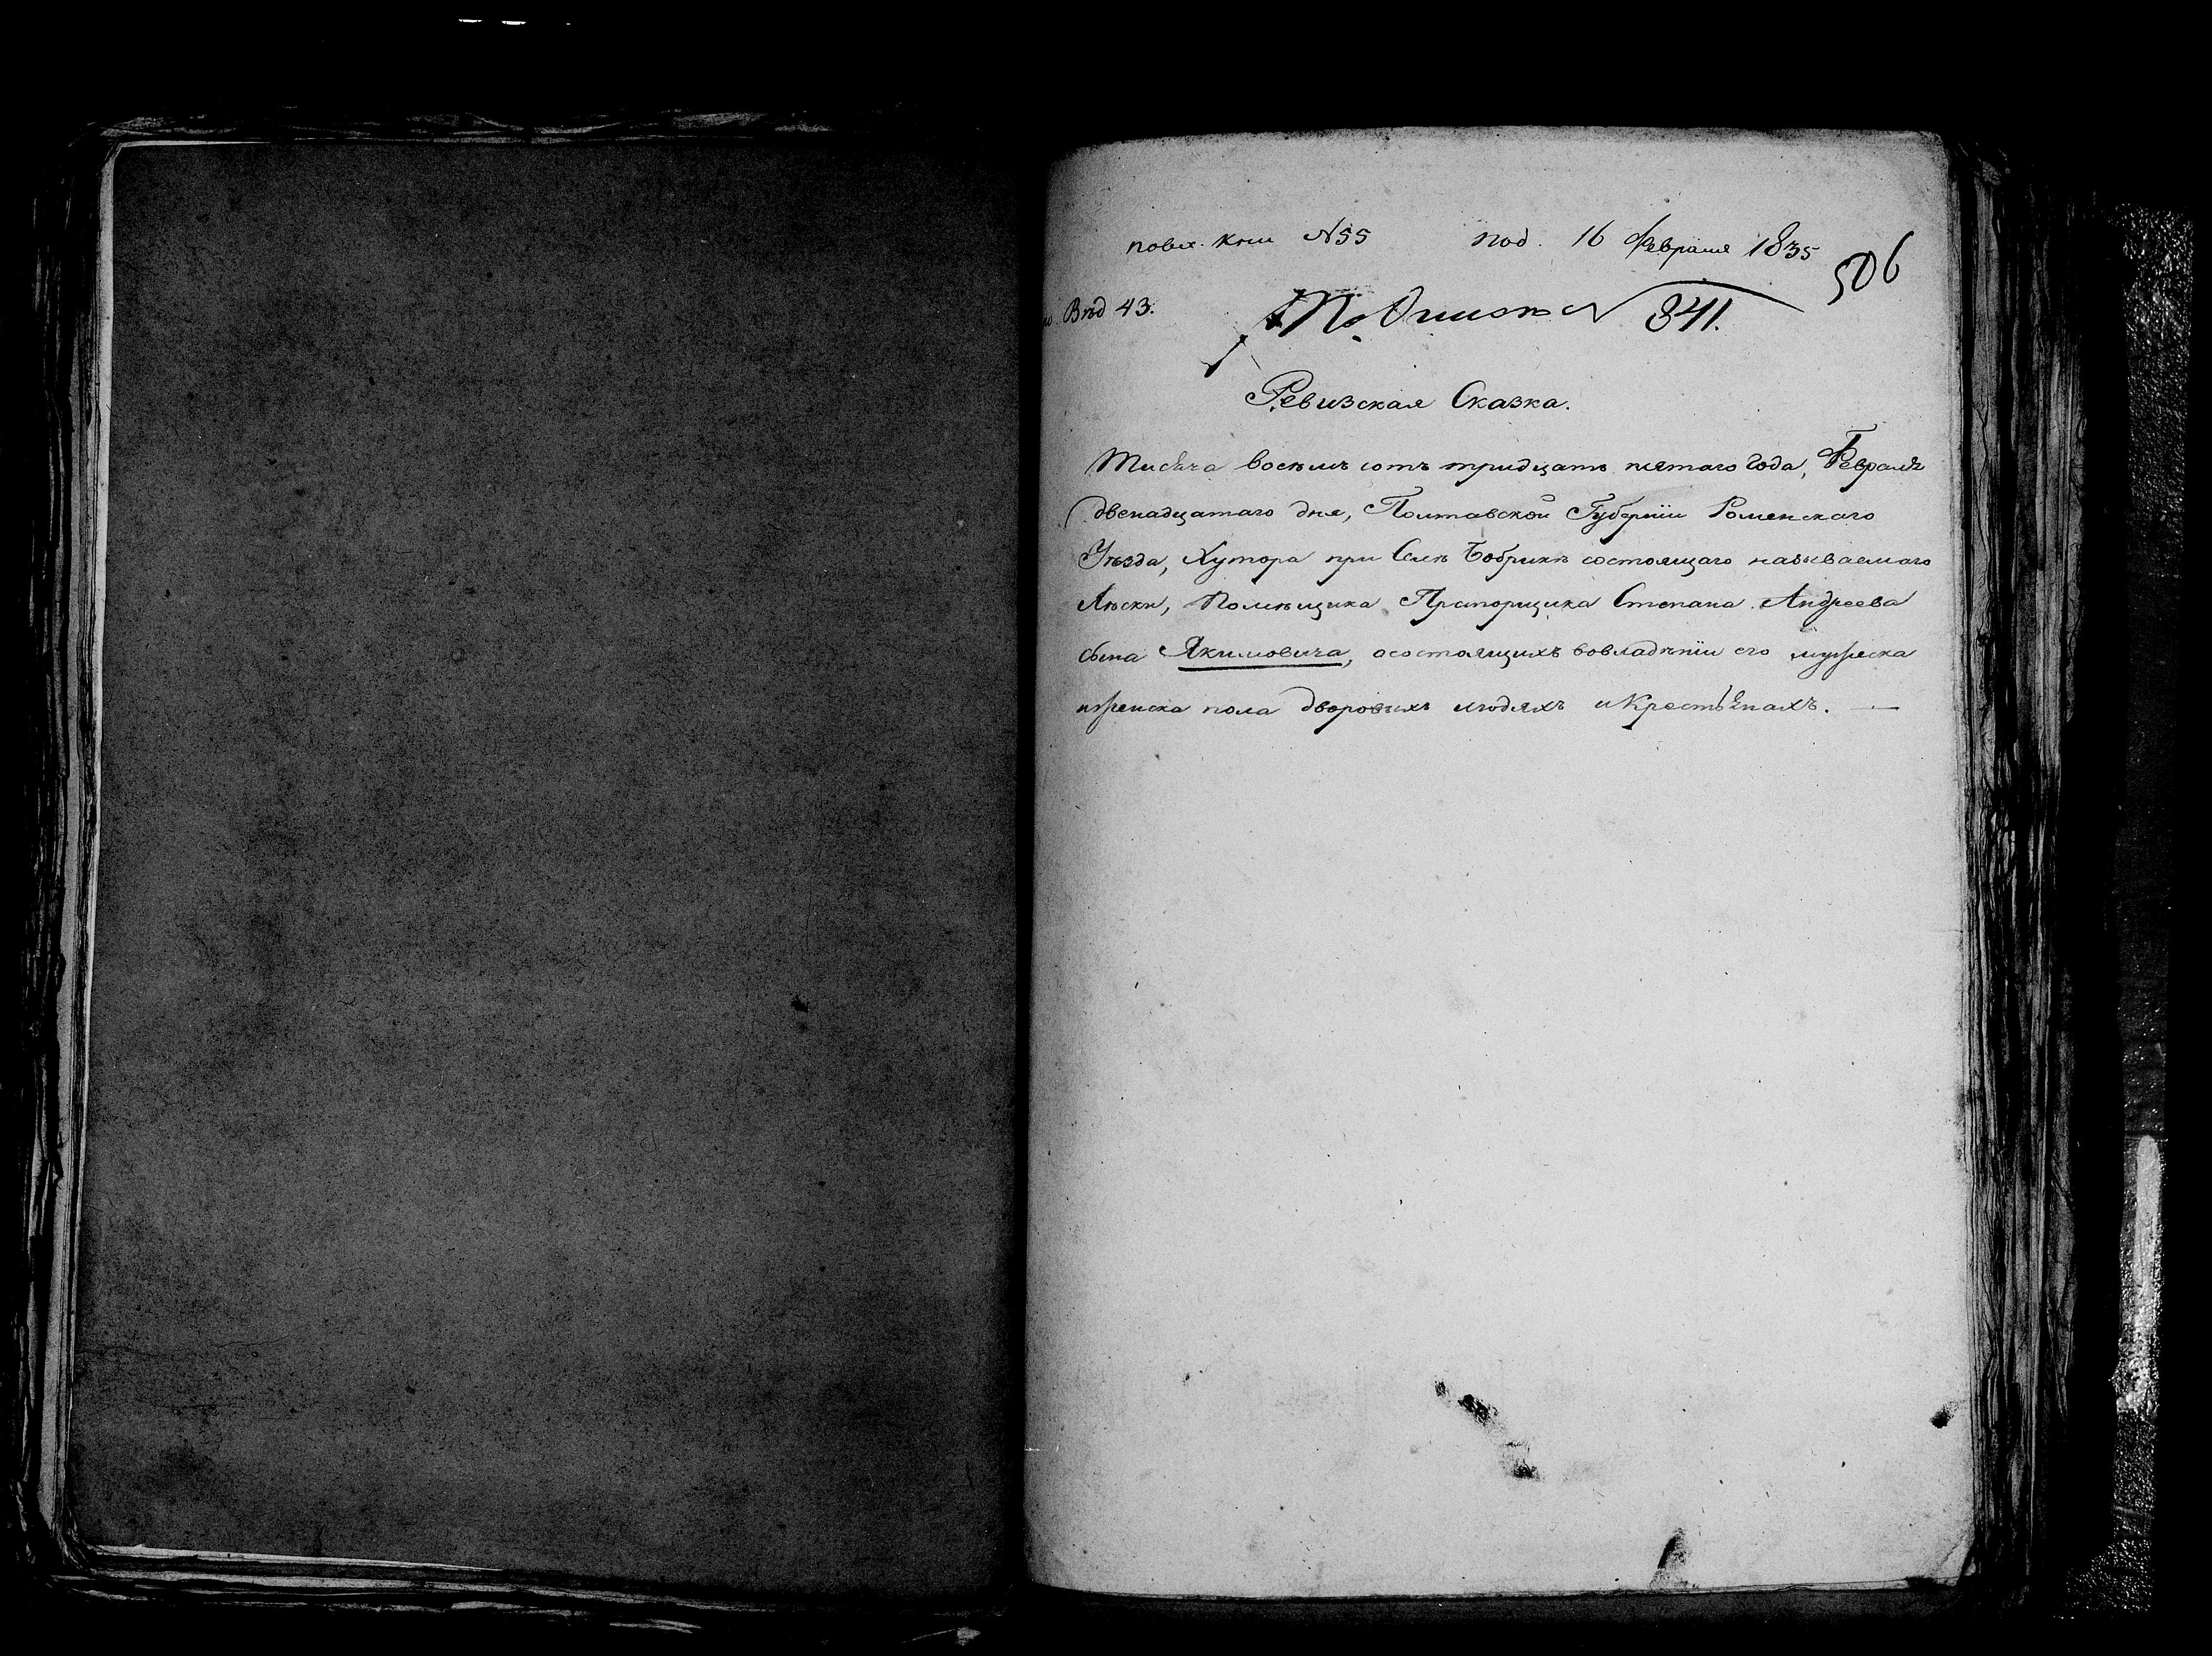 повх. кни №55 под. 16 Февраля 1835
506
Вѣд 43.
По Описи № 841.
Ревизская Сказка.
Тисяча восемъ сотъ тридцать пятаго Года, Февраля
двенадцатаго дня, Полтавской Губерніи Роменскаго
Уѣзда, Хутора при Селѣ Бобрикѣ состоящаго называемаго
Лѣски, Помѣщика Прапорщика Степана Андреева
сына Якимовича, осостоящихъ вовладѣніи его мужеска
иженска пола дворовыхъ людяхъ иКрестьянахъ.